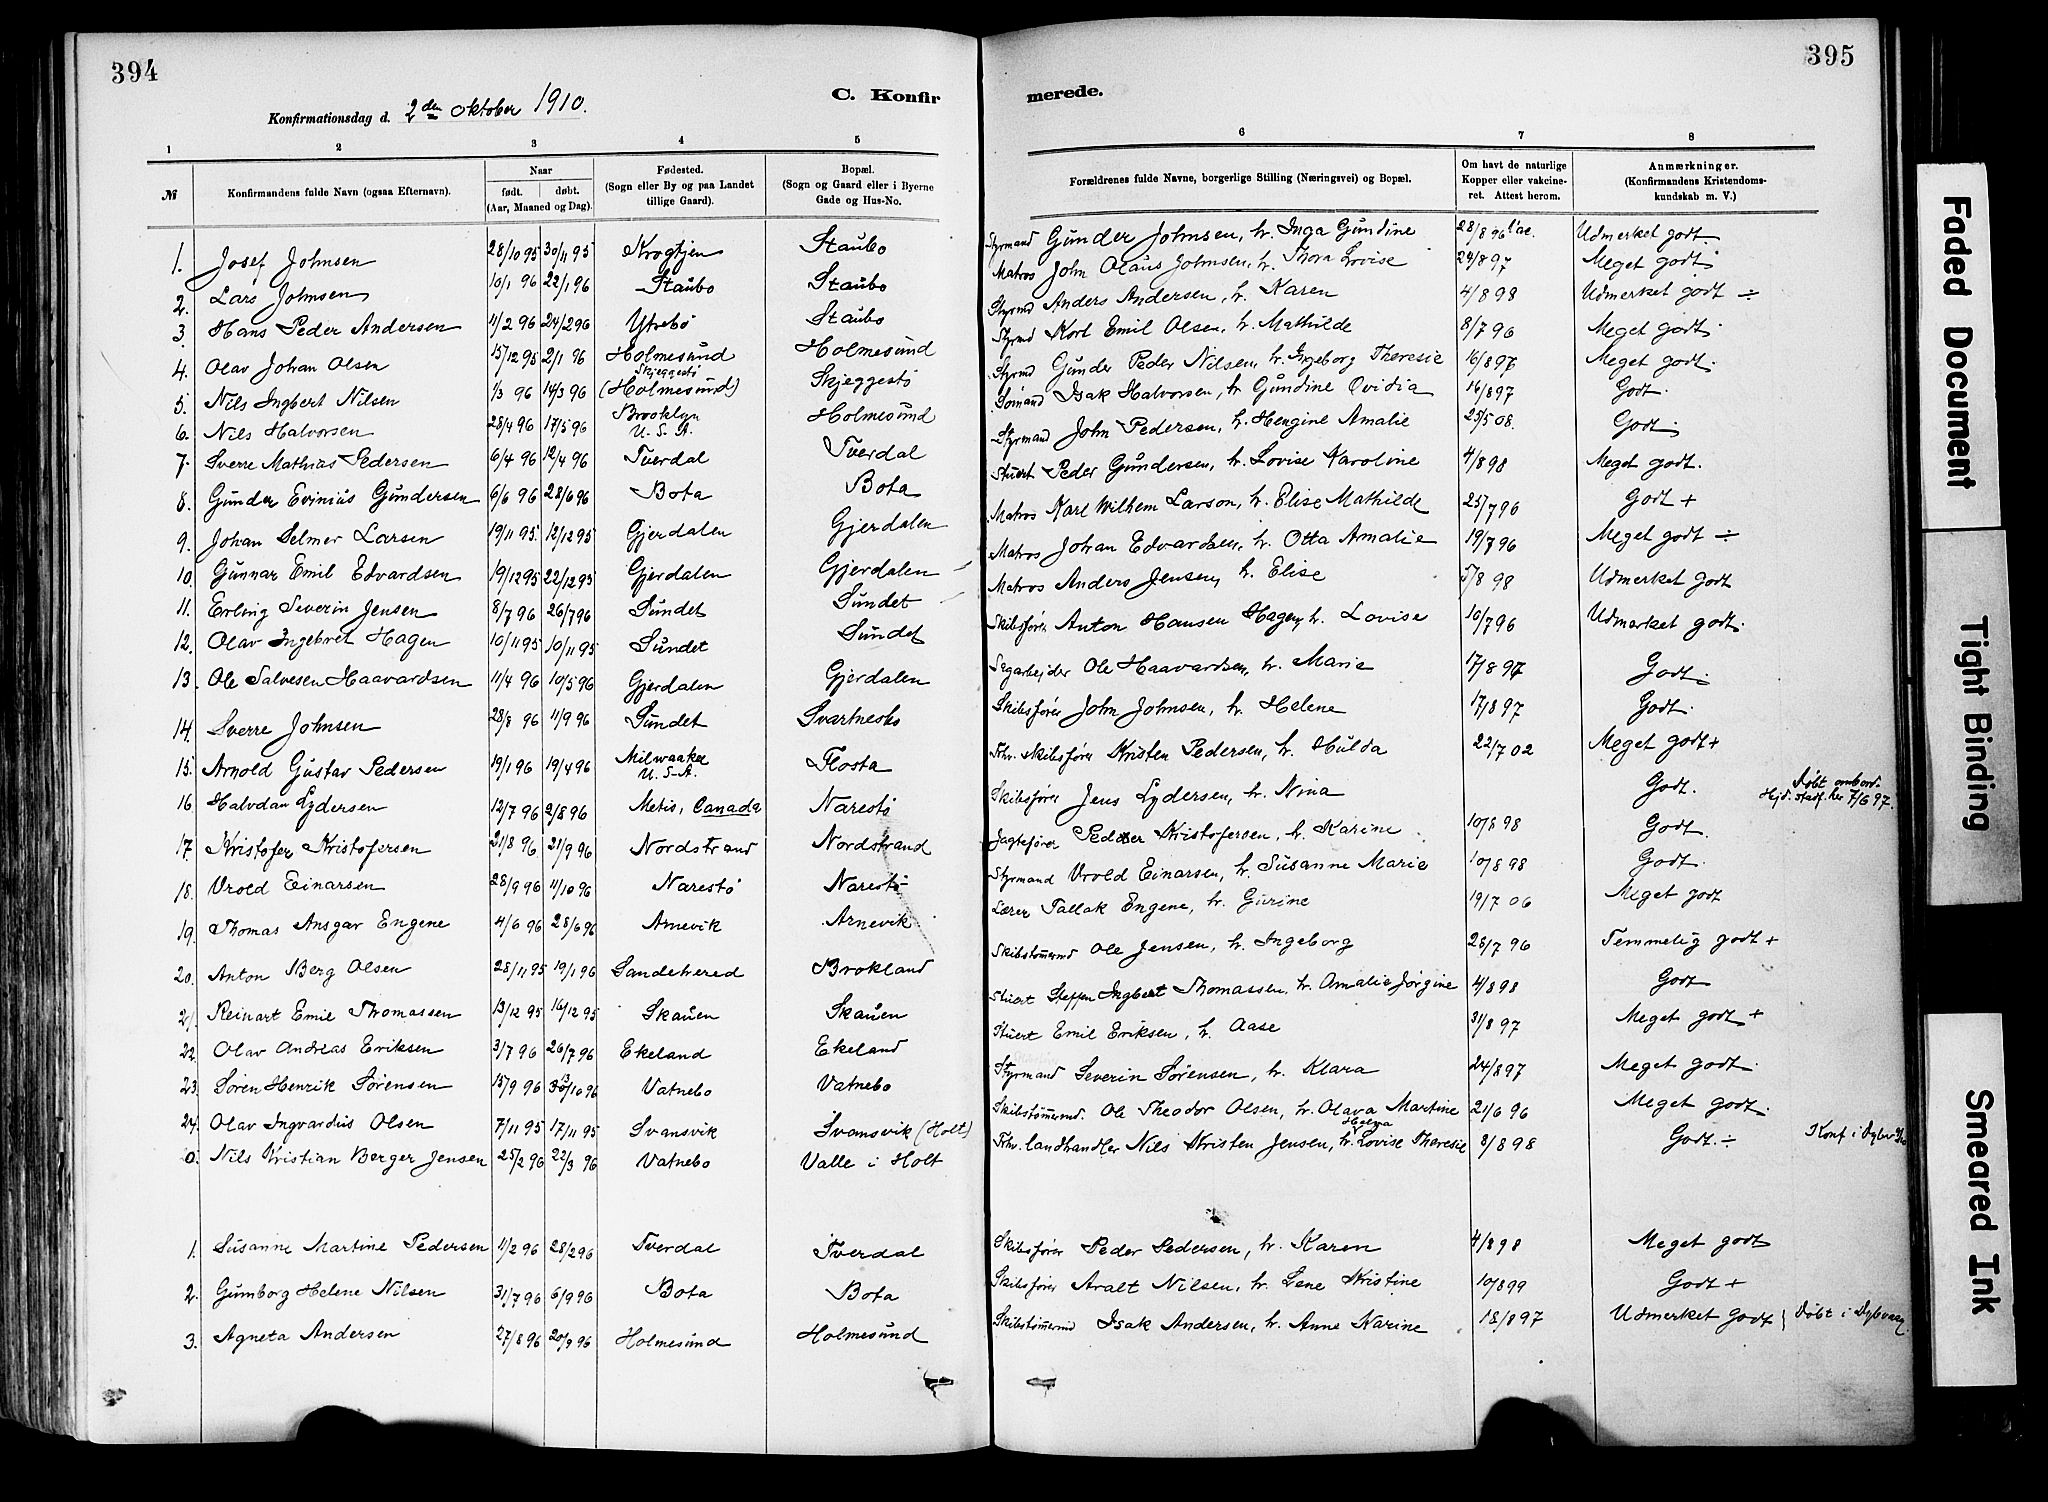 394
395
C. Konfir
merede.
Konfirmationsdag d. 2den Oktober 1910.
1 2 3 4 5 6 7 8
№ Konfirmandens fulde Navn (ogsaa Efternavn). Naar født. døbt. (Aar, Maaned og Dag). Fødested. (Sogn eller By og paa Landet tillige Gaard). Bopæl. (Sogn og Gaard eller i Byerne Gade og Hus-No. Forældrenes fulde Navne, borgerlige Stilling (Næringsvei) og Bopæl. Om havt de naturlige Kopper eller vakcineret. Attest herom. Anmærkninger. (Konfirmandens Kristendomskundskab m. V.)
1. Josef Johnsen 28/10 95 30/11 95 Krogtjen Staubo Styrmand Gunder Johnsen, h. Inga Gundine 28/8 96 Udmerket godt.
2. Lars Johnsen 10/1 96 22/1 96 Staubo Staubo Matros John Olaus Johnsen, h. Thora Lovise 24/8 97 Meget godt
3. Hans Peder Andersen 11/2 96 24/2 96 Ytrebø Staubo Styrmd Anders Andersen, h. Karen 4/8 98 Udmerket godt ÷
4. Olav Johan Olsen 15/12 95 2/1 96 Holmesund Holmesund Styrmd Karl Emil Olsen, h. Mathilde 8/7 96 Meget godt.
5. Nils Ingbert Nilsen 1/3 96 14/3 96 Skjeggestø (Holmesund) Skjeggestø Styrmd Gunder Peder Nilsen, h. Ingeborg Theresie 16/8 97 Meget godt.
6. Nils Halvorsen 28/4 96 17/5 96 Brooklyn U. S. A. Holmesund Sømand Isak Halvorsen, h. Gundine Ovidia 16/8 97 Godt.
7. Sverre Mathias Pedersen 6/4 96 12/4 96 Tverdal Tverdal Styrmand John Pedersen, h. Hengine Amalie 25/5 08. Godt.
8. Gunder Evinius Gundersen 6/6 96 28/6 96 Bota Bota Stuert Peder Gundersen, h. Lovise Karoline 4/8 98 Meget godt.
9. Johan Selmer Larsen 19/11 95. 12/12 95 Gjerdalen Gjerdalen Matros Karl Wilhem Larson, h. Elise Mathilde 25/7 96 Godt +
10. Gunnar Emil Edvardsen 19/12 95 22/12 95 Gjerdalen Gjerdalen Matros Johan Edvardsen, h. Otta Amalie 19/7 96 Meget godt ÷
11. Erling Severin Jensen 8/7 96 26/7 96 Sundet Sundet Matros Anders Jensen, h. Elise 5/8 98 Udmerket godt
12. Olav Ingebret Hagen 10/11 95 10/11 95 Sundet Sundet Skibsfører Anton Hansen Hagen, h. Lovise 10/7 96 Udmerket godt.
13. Ole Salvesen Haavardsen 11/4 96 10/5 96 Gjerdalen Gjerdalen Sagarbejder Ole Haavardsen, h. Marie 17/8 97 Godt.
14. Sverre Johnsen 28/8 96 11/9 96 Sundet Svartnesks Skibsfører John Johnsen, h. Helene 17/8 97 Godt.
15. Arnold Gustav Pedersen 19/1 96 19/4 96 Milwaakee U. S. A. Flosta Fhv. skibsfører Kristen Pedersen, h. Hulda 22/7 02 Meget godt +
16 Halvdan Lydersen 12/7 96 2/8 96 Metis, Canada Narestø Skibsfører Jens Lydersen, h. Nina Godt. Døbt ombord. Hjd. stadf. her 7/6 97.
17. Kristofer Kristofersen 21/8 96 21/9 96 Nordstrand Nordstrand Jagtefører Peder Kristofersen, h. Karine 10/8 98 Godt.
18. Vrold Einarsen 28/9 96 11/10 96 Narestø Narestø Styrmand Vrold Einarsen, h. Susanne Marie 10/8 98 Godt.
19. Thomas Ansgar Engene 4/6 96 28/6 96 Arnevik Arnevik Lærer Tallak Engene, h. Gurine 19/7 06 Meget godt
20. Anton Berg Olsen 28/11 95 19/1 96 Sandehered Brokland Skibstømmermd Ole Jensen, h. Ingeborg 28/7 96 Temmelig godt +
21. Reinart Emil Thomassen 13/12 95 16/12 95 Skauen Skauen Stuert Steffen Ingbert Thomassen, h. Amalie Jørgine 4/8 98 Godt
22. Olav Andreas Eriksen 3/7 96 26/7 96 Ekeland Ekeland Stuert Emil Eriksen, h. Aase 31/8 97 Meget godt +
23. Søren Henrik Sørensen 15/9 96 /10 96 Vatnebo Vatnebo Styrmand Severin Sørensen, h. Klara 24/8 97 Meget godt.
24. Olav Ingvardius Olsen 7/11 95 17/11 95 Svansvik Svansvik (Holt) Skibstømmermd. Ole Theodor Olsen, h. Olava Martine 21/6 96 Meget godt.
0. Nils Kristian Berger Jensen 25/2 96 22/3 96 Vatnebo Valle i Holt Fhv. landhandler Nils Kristen Jensen, h. Helga Lovise Theresie 3/8 98 Godt. ÷ Konf i Dybv
1. Susanne Martine Pedersen 11/2 96 28/2 96 Tverdal Tverdal Skibsfører Peder Pedersen, h. Karen 4/8 98 Meget godt
2. Gunborg Helene Nilsen 31/7 96 6/9 96 Bota Bota Skibsfører Aralt Nilsen, h. Lene Kristine 10/8 99 Godt +
3. Agneta Andersen 27/8 96 20/9 96 Holmesund Holmesund Skibstømmermd Isak Andersen, h. Anne Karine 18/8 97 Udmerket godt Døbt i Dybvaag.
Faded Document
Tight Binding
Smeared Ink